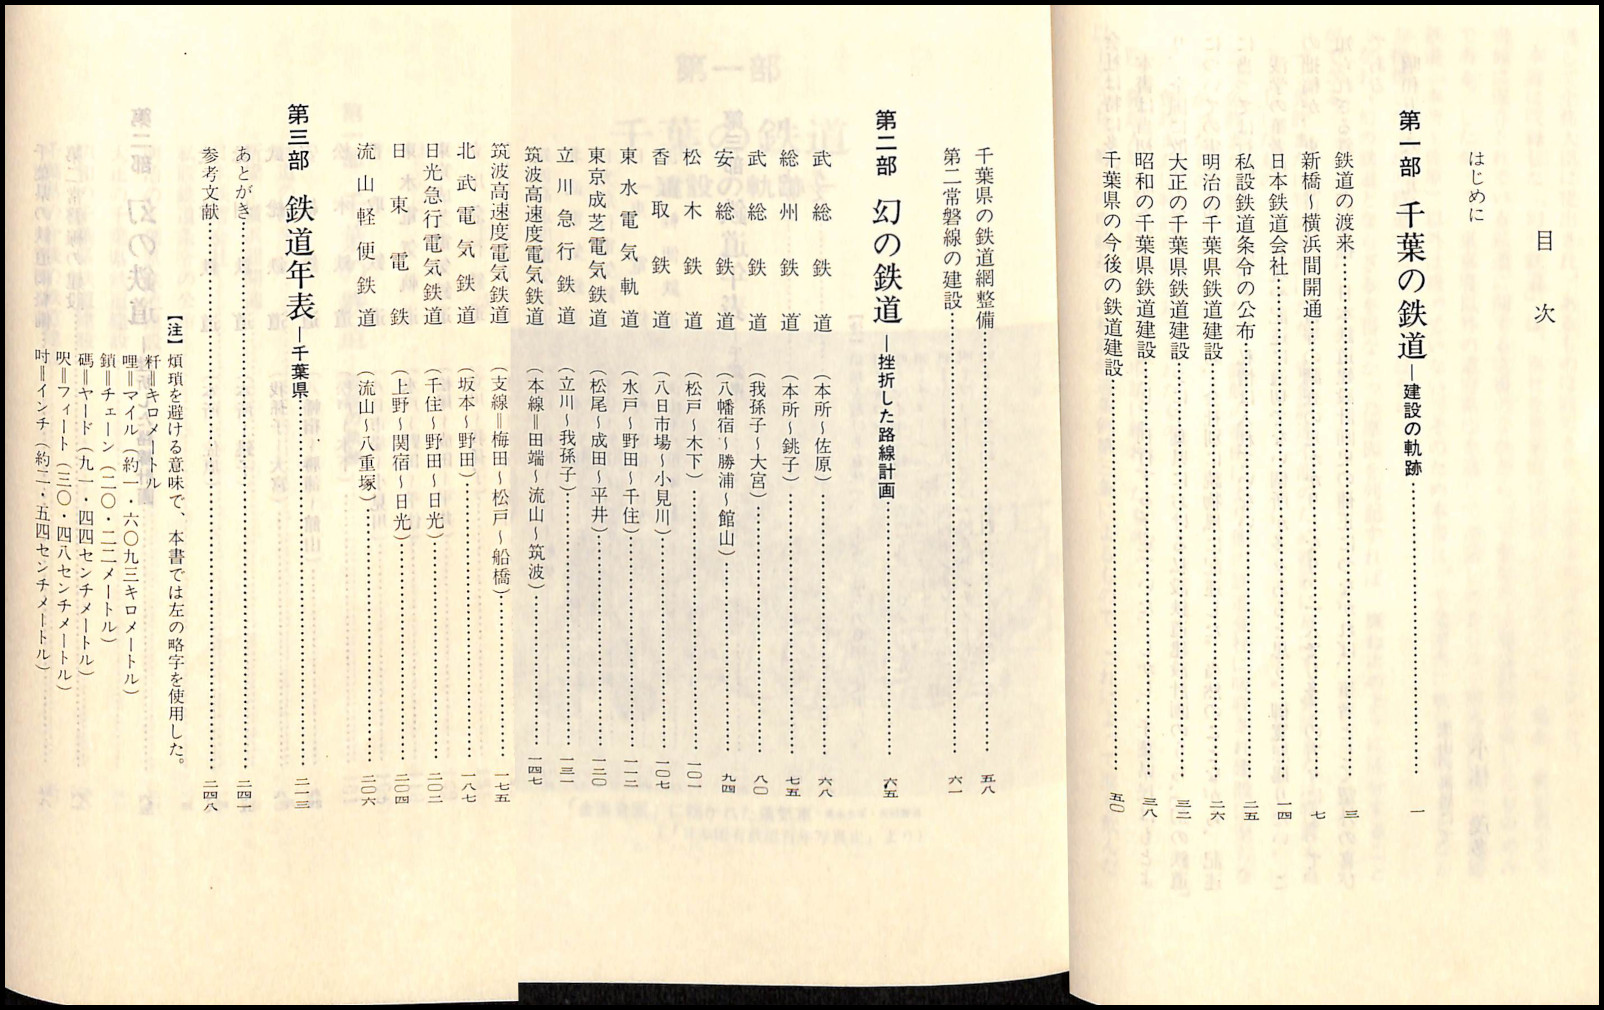 目次
はじめに
第一部 千葉の鉄道―建設の軌跡……一
鉄道の渡来……三
新橋～横浜間開通……七
日本鉄道会社……一四
私設鉄道条令の公布……二五
明治の千葉県鉄道建設……二六
大正の千葉県鉄道建設……三二
昭和の千葉県鉄道建設……三八
千葉県の今後の鉄道建設……五〇
千葉県の鉄道網整備……五八
第二常磐線の建設……六一
第二部 幻の鉄道―挫折した路線計画……六五
武総鉄道（本所～佐原）……六八
総州鉄道（本所～銚子）……七五
武総鉄道（我孫子～大宮）……八〇
安総鉄道（八幡宿～勝浦～館山）……九四
松木鉄道（松戸～木下）……一〇一
香取鉄道（八日市場～小見川）……一〇七
東水電気軌道（水戸～野田～千住）……一一二
東京成芝電気鉄道（松尾～成田～平井）……一二〇
立川急行鉄道（立川～我孫子）……一三一
筑波高速度電気鉄道（本線＝田端～流山～筑波）……一四七
筑波高速度電気鉄道（支線＝梅田～松戸～船橋）……一七五
北武電気鉄道（坂本～野田）……一八七
日光急行電気鉄道（千住～野田～日光）……二〇二
日東電鉄（上野～関宿～日光）……二〇四
流山軽便鉄道（流山～八重塚）……二〇六
第三部 鉄道年表―千葉県……二一三
あとがき……二四一
参考文献……二四八
【注】煩瑣を避ける意味で、本書では左の略字を使用した。
粁＝キロメートル
哩＝マイル（約一・六〇九三キロメートル）
鎖＝チェーン（二〇・一二メートル）
碼＝ヤード（九一・四四センチメートル）
呎＝フィート（三〇・四八センチメートル）
吋＝インチ（約二・五四センチメートル）